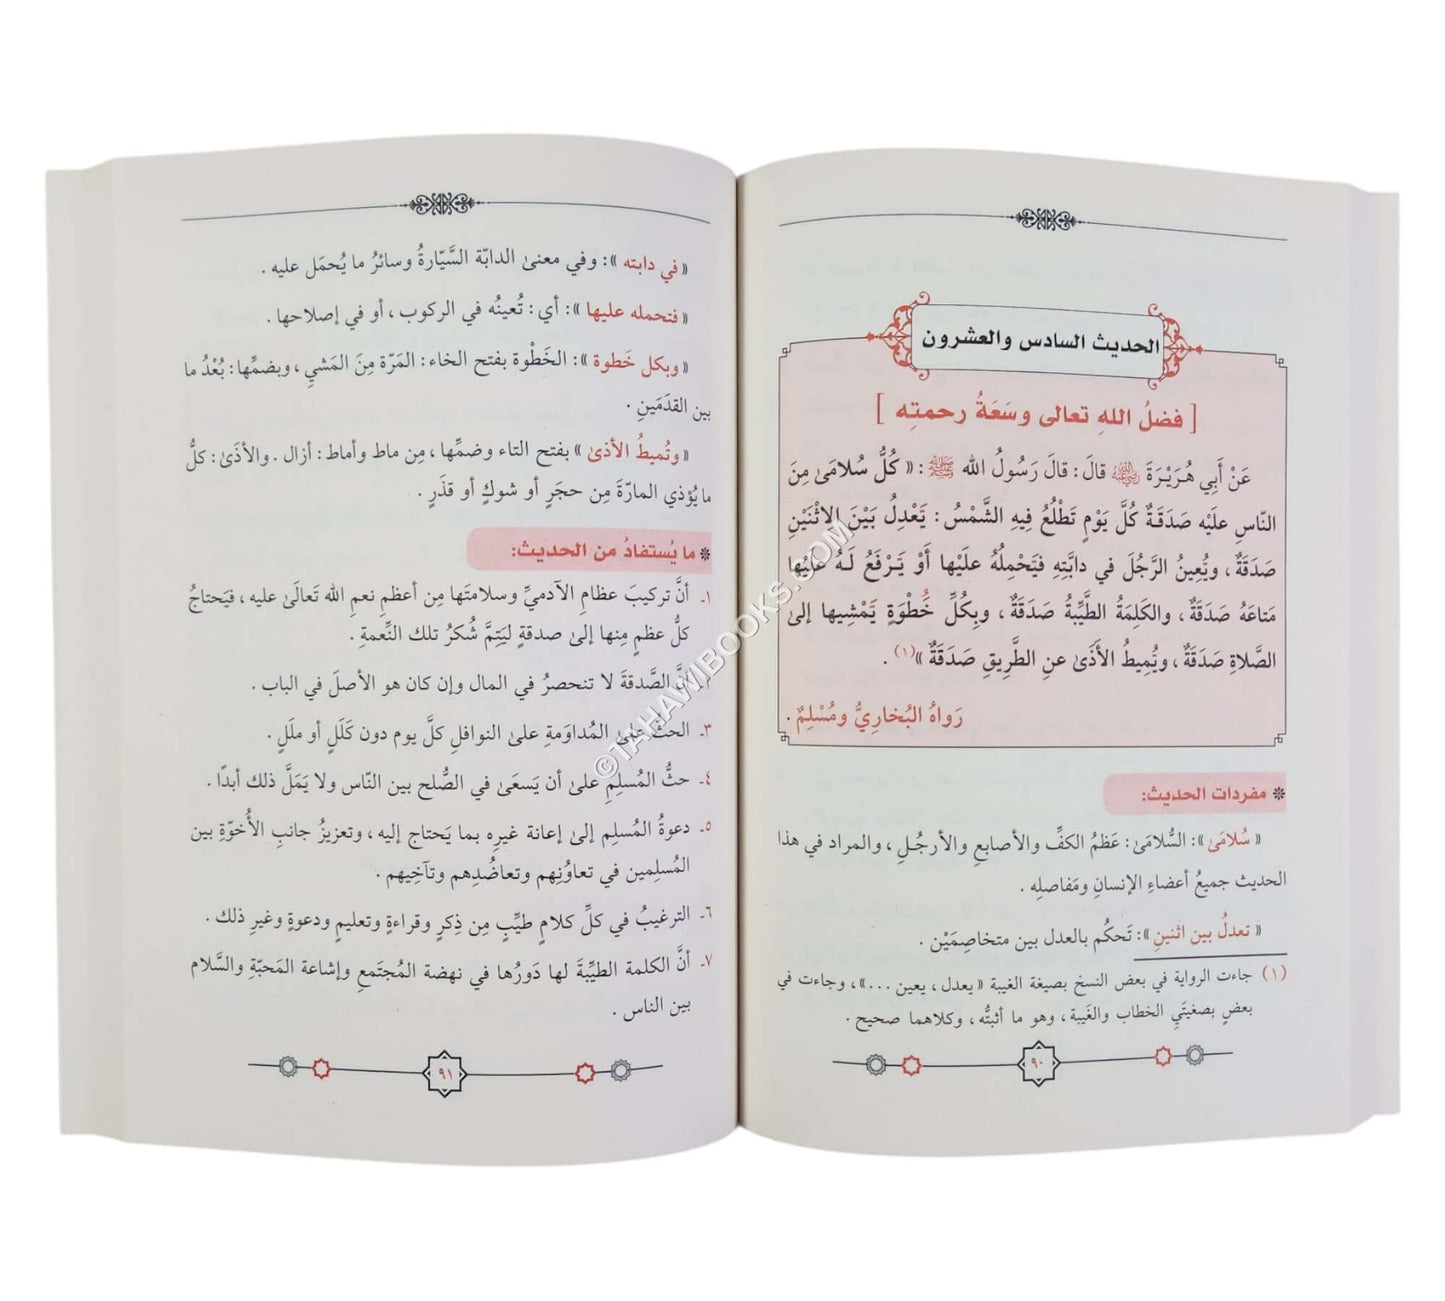 الحديث السادس والعشرون
[ فضلُ اللهِ تعالى وسَعَةُ رحمتِه ]
عَنْ أَبِي هُرَيْرَةَ ﵁ قالَ : قالَ رَسُولُ الله ﷺ : « كُلُّ سُلامَىٰ مِنَ
النّاسِ عليْه صَدَقَةٌ كُلَّ يَوْمٍ تَطْلُعُ فِيهِ الشَّمْسُ : تَعْدِلُ بَيْنَ الاِثْنَيْنِ
صَدَقَةٌ ، وتُعِينُ الرَّجُلَ في دابَّتِهِ فيَحْمِلُهُ علَيْها أَوْ يَرْفَعُ لَهُ علَيْها
مَتاعَهُ صَدَقَةٌ ، والكَلِمَةُ الطَّيِّبةُ صَدَقَةٌ ، وبِكُلِّ خَُطْوَةٍ يَمْشِيها إلىٰ
الصَّلاةِ صَدَقَةٌ ، وتُمِيطُ الأَذَىٰ عنِ الطَّرِيقِ صَدَقَةٌ »(١) .
رَواهُ البُخاريُّ ومُسْلِمٌ .
❋ مفردات الحديث:
« سُلامَىٰ »: السُّلامَىٰ : عَظمُ الكفِّ والأصابعِ والأرجُلِ ، والمراد في هذا
الحديث جميعُ أعضاءِ الإنسانِ ومَفاصلِه .
« تعدلُ بين اثنينِ »: تَحكُم بالعدل بين متخاصِمَيْن .
(١) جاءت الرواية في بعض النسخ بصيغة الغيبة « يعدل ، يعين ... »، وجاءت في
بعضٍ بصغيتَي الخطاب والغَيبة ، وهو ما أثبتُّه ، وكلاهما صحيح .
٩٠
« في دابته »: وفي معنىٰ الدابّة السَّيّارةُ وسائرُ ما يُحمَل عليه .
« فتحمله عليها »: أي : تُعينُه في الركوب ، أو في إصلاحها .
« وبكل خَطوة »: الخَطْوة بفتح الخاء : المَرّة مِنَ المَشي ، وبضمِّها : بُعْدُ ما
بين القدَمَينِ .
« وتُميطُ الأذىٰ » بفتح التاء وضمِّها ، مِن ماط وأماط : أزال . والأذَىٰ : كلُّ
ما يُؤذي المارّةَ مِن حجَرٍ أو شوكٍ أو قذَرٍ .
❋ ما يُستفادُ من الحديث:
١ـ أنَّ تركيبَ عظامِ الآدميِّ وسلامتَها مِن أعظمِ نعمِ الله تَعالَىٰ عليه ، فيَحتاجُ
كلُّ عظمٍ مِنها إلىٰ صدقةٍ ليَتِمَّ شُكرُ تلك النِّعمةِ .
أنَّ الصَّدقةَ لا تنحصرُ في المال وإن كان هو الأصلَ في الباب .
٣ـ الحثُّ علىٰ المُداوَمةِ علىٰ النوافلِ كلَّ يوم دون كَلَلٍ أو ملَلٍ .
٤ـ حثُّ المُسلِمِ علىٰ أن يَسعَىٰ في الصُّلح بين النّاس ولا يَمَلَّ ذلك أبدًا .
٥ـ دعوةُ المُسلِم إلىٰ إعانة غيرِه بما يَحتاج إليه ، وتعزيزُ جانبِ الأُخوّةِ بين
المُسلِمين في تعاوُنِهم وتعاضُدِهم وتآخِيهم .
٦ـ الترغيبُ في كلِّ كلامٍ طيِّبٍ مِن ذِكرٍ وقراءةٍ وتعليمٍ ودعوةٍ وغيرِ ذلك .
٧ـ أنَّ الكلمة الطيِّبةَ لها دَورُها في نهضة المُجتَمعِ وإشاعة المَحبّةِ والسَّلام
بين الناس .
٩١
©TAHAWIBOOKS.COM